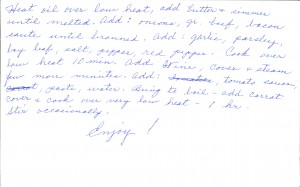 Heat oil over low heat, add butter & simmer
until melted. Add: onions, gr. beef, bacon
saute until browned. Add: garlic, parsley,
bay leaf, salt, pepper, red pepper. Cook over
low heat 10 min. Add Wine, cover & steam
few more minutes. Add: tomato sauce,
paste, water. Bring to boil - add carrot
cover & cook over very low heat - 1 hr.
Stir occasionally.
Enjoy!